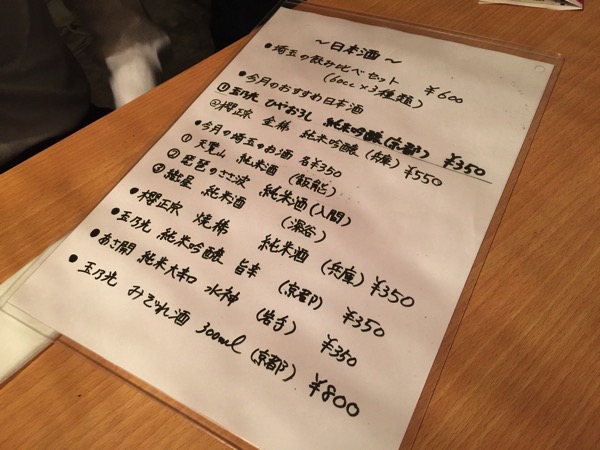 ～日本酒～
●埼玉の飲み比べセット ¥600
(60cc×3種類)
●今月のおすすめ日本酒
①玉乃光 ひやおろし 純米吟醸(京都) ¥350
②櫻正宗 金稀 純米吟醸(兵庫) ¥550
●今月の埼玉のお酒 各¥350
①天覧山 純米酒 (飯能)
②琵琶のささ波 純米酒(入間)
③鎧屋 純米酒 (深谷)
●櫻正宗 焼稀 純米酒 (兵庫) ¥350
●玉乃光 純米吟醸 旨辛 (京都) ¥350
●あさ開 純米大辛 水神 (岩手) ¥350
●玉乃光 みぞれ酒 300ml (京都) ¥800